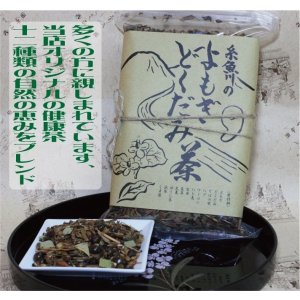 多くの方に親しまれています、
当店オリジナルの健康茶
十二種類の自然の恵みをブレンド
糸魚川の
よもぎ
どくだみ
茶